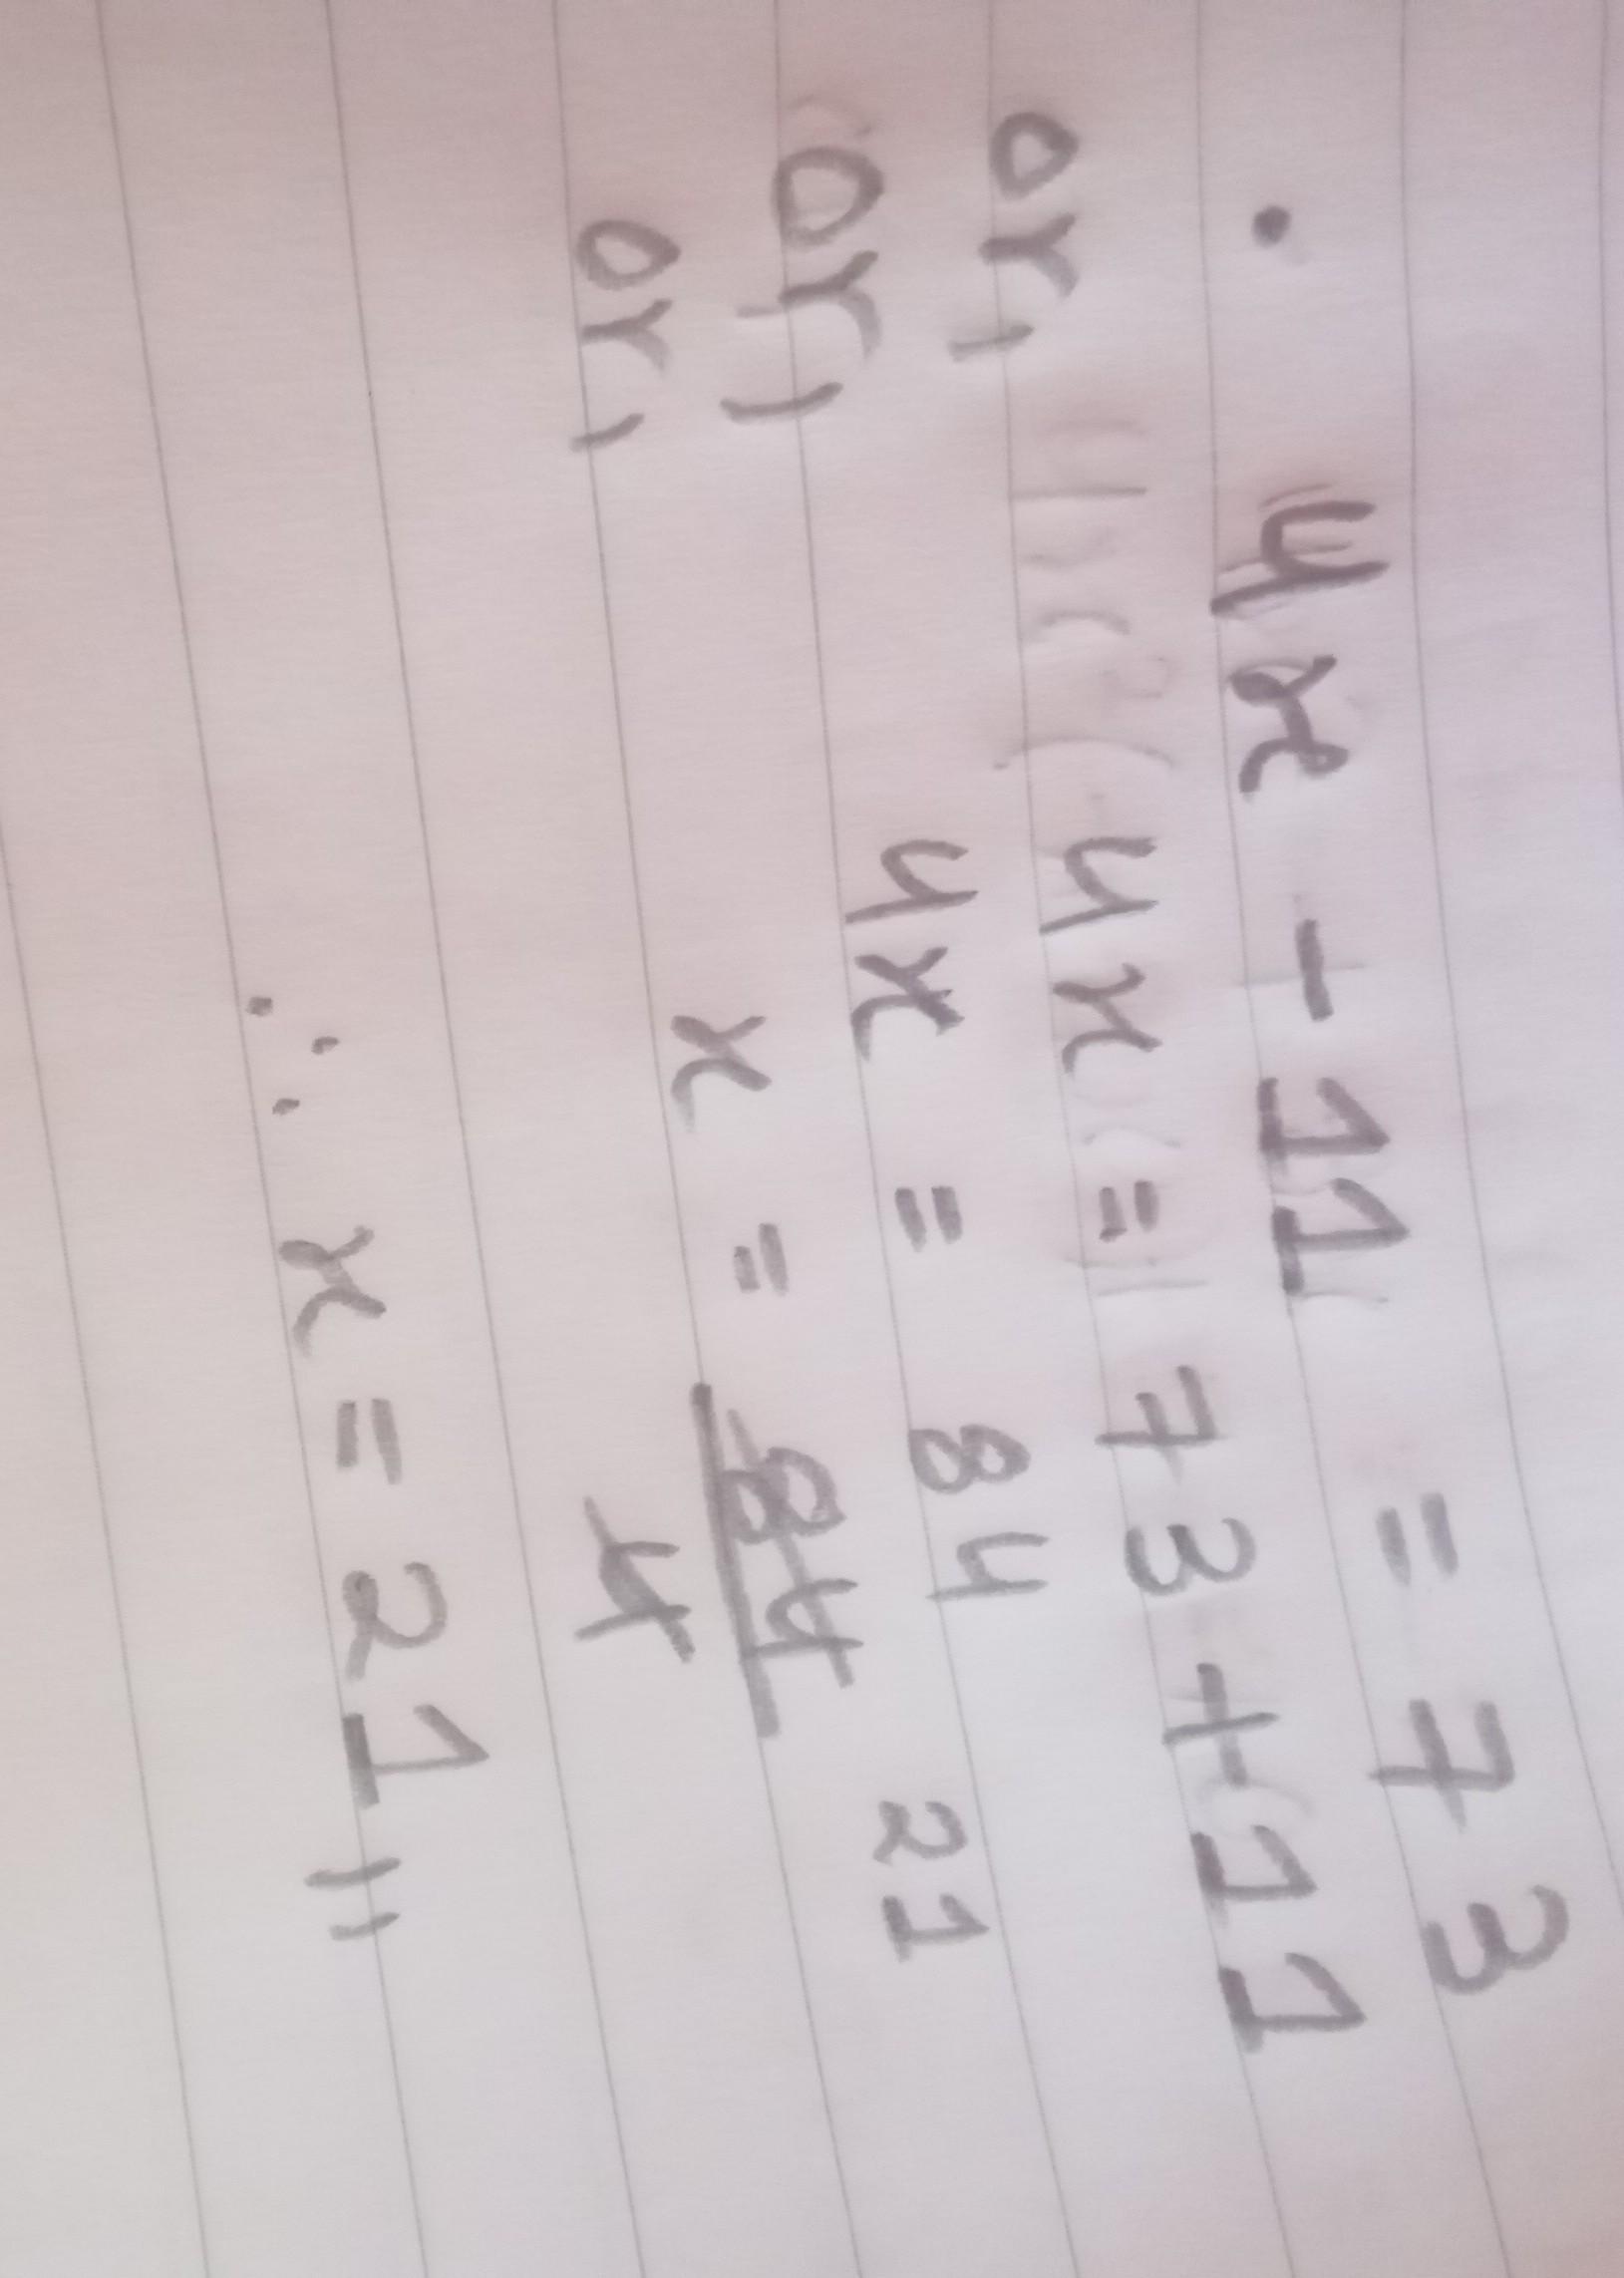 . 4x - 11 = 73
or, 4x = 73 + 11
or, 4x = 84
or, x = 84/4 21
∴ x = 21 "